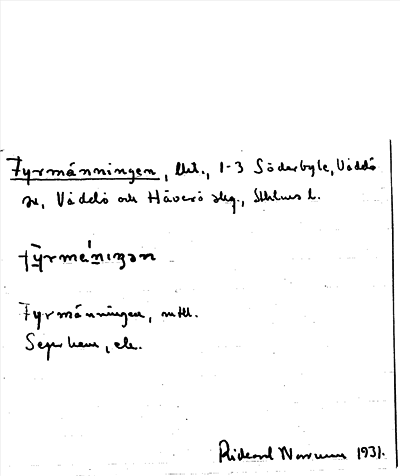 Fyrmänningen, lht., 1-3 Söderbyle, Väddö
sn, Väddö och Häverö skg., Sthlms l.
fy̱rméṉiŋən
Fyrmänningen, mtl.
Rickard Norrman 1931.